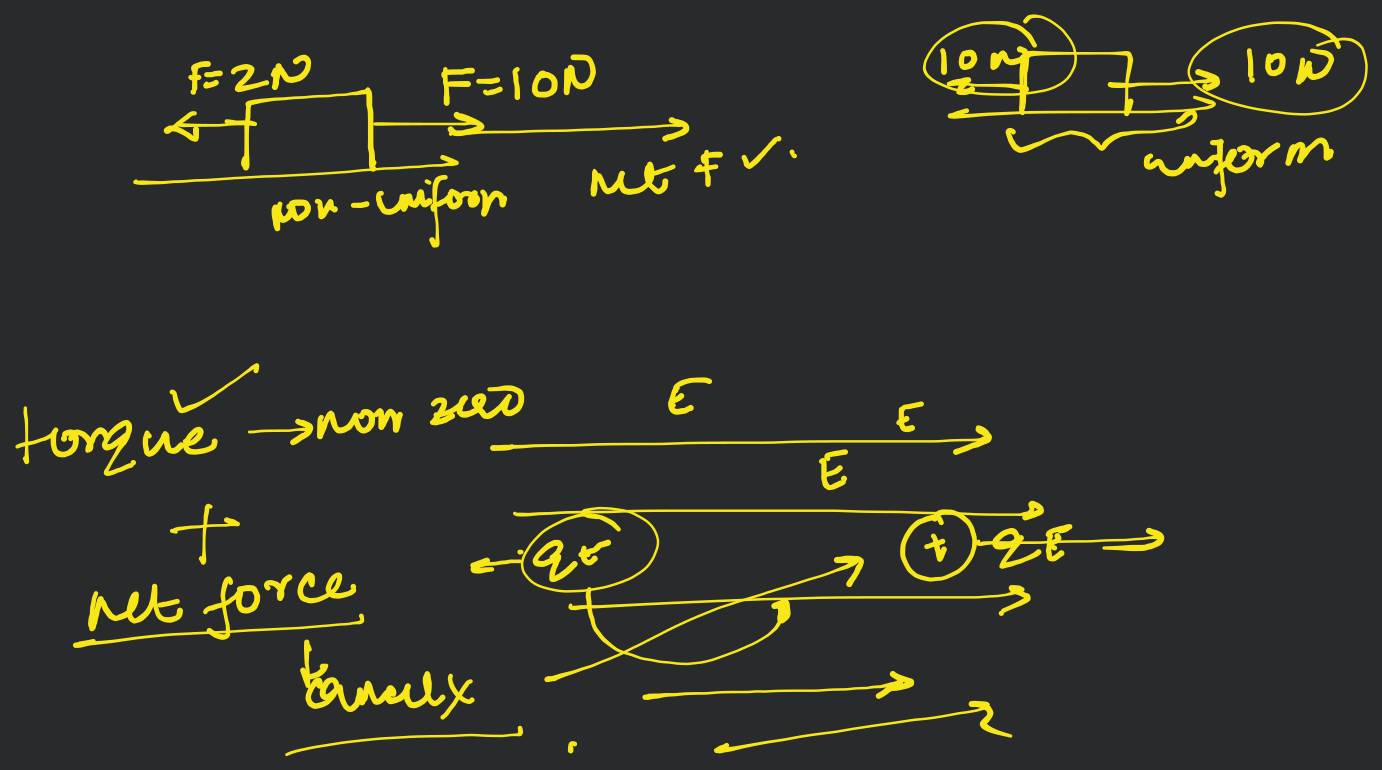 F=2N
F=10N
10N
10N
net F ✓.
uniform
non-uniform
torque ✓ → non zero
E
E
E
+
qE
+
qE
net force